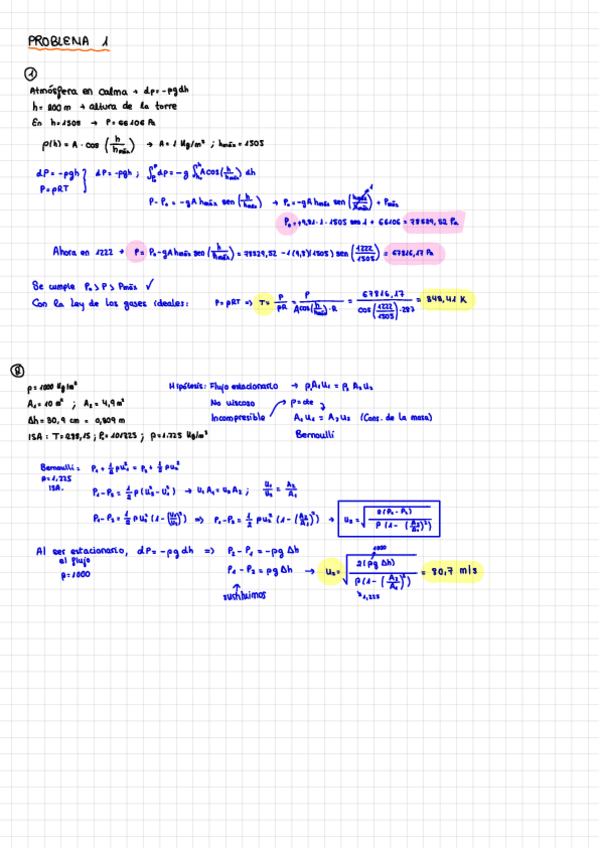 PROBLEMA 1
①
Atmósfera en calma → dp = -ρgdh
h = 800 m → altura de la torre
En h = 1505 → P = 66106 Pa
ρ(h) = A · cos (h/hmáx) → A = 1 Kg/m³ ; hmáx = 1505
dP = -ρgh } dP = -ρgh ; ∫dp = -g ∫ A cos(h/hmáx) dh
P = ρRT
P - P₀ = -gA hmáx sen (h/hmáx) → P₀ = -gA hmáx sen (hmáx/hmáx) + Pmáx
P₀ = +9,81 · 1 · 1505 sen 1 + 66106 = 78529,52 Pa
Ahora en 1222 → P = P₀ - gA hmáx sen (h/hmáx) = 78529,52 - 1(9,8)(1505) sen (1222/1505) = 67816,17 Pa
Se cumple P₀ > P > Pmáx ✓
Con la Ley de los gases ideales: P = ρRT => T = P/ρR = P/(A cos(h/hmáx) · R) = 67816,17/(cos(1222/1505) · 287) = 848,41 K
②
ρ = 1000 Kg/m³ Hipótesis: Flujo estacionario → ρ₁A₁U₁ = ρ₂A₂U₂
A₁ = 10 m² ; A₂ = 4,9 m² No viscoso → ρ = cte
Δh = 30,9 cm = 0,309 m Incompresible A₁U₁ = A₂U₂ (Cons. de la masa)
ISA: T = 288,15 ; P₀ = 101325 ; ρ = 1.225 Kg/m³ Bernoulli
Bernoulli: P₁ + ½ρU₁² = P₂ + ½ρU₂²
ρ = 1,225
ISA.
P₁ - P₂ = ½ρ(U₂² - U₁²) → U₁A₁ = U₂A₂ ; U₁/U₂ = A₂/A₁
P₁ - P₂ = ½ρU₂²(1 - (U₁/U₂)²) => P₁ - P₂ = ½ρU₂²(1 - (A₂/A₁)²) → U₂ = √(2(P₁ - P₂)/(ρ(1 - (A₂/A₁)²)))
Al ser estacionario, dP = -ρgdh => P₂ - P₁ = -ρgΔh
el flujo
ρ = 1000
P₁ - P₂ = ρgΔh → U₂ = √(2(ρgΔh)/(ρ(1 - (A₂/A₁)²))) = 30,7 m/s
1000
1,225
sustituimos